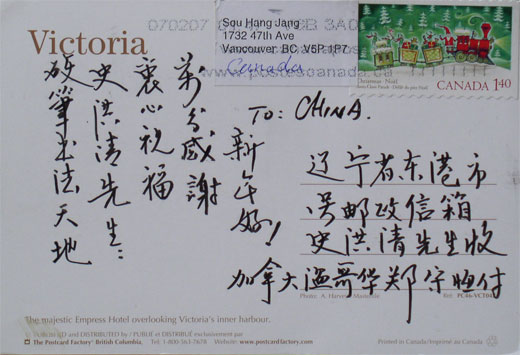 Victoria
070207
Sou Hang Jang
1732 47th Ave
Vancouver BC V5P 1P7
Canada
www.postescanada.ca
CANADA 1.40
硬筆书法天地
史洪清先生:
衷心祝福
萬分感謝
新年好!
TO: CHINA.
辽宁省东港市
邮政信箱
史洪清先生收
加拿大温哥华郑守恒付
The majestic Empress Hotel overlooking Victoria's inner harbour.
PUBLISHED and DISTRIBUTED by / PUBLIÉ et DISTRIBUÉ exclusivement par
The Postcard Factory® British Columbia Tel: 1-800-563-7678 Website: www.postcardfactory.com
Printed in Canada/Imprimé au Canada